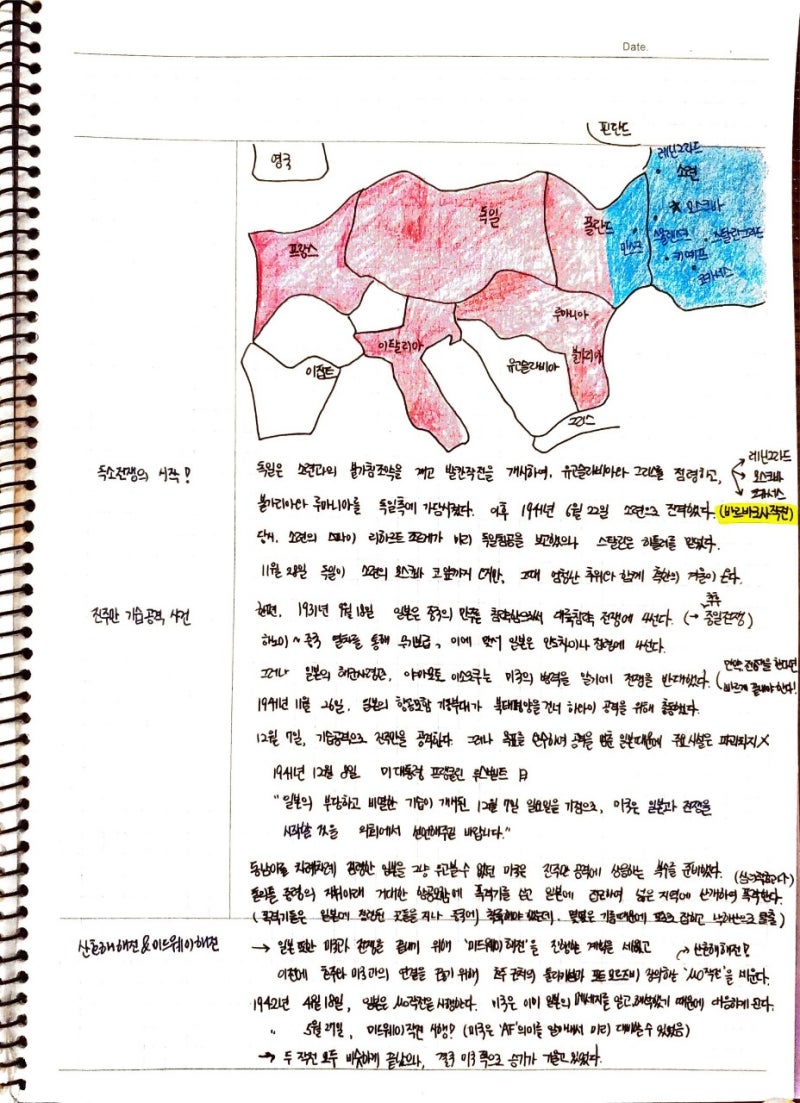 Date.
핀란드
영국
레닌그라드
소련
모스크바
독일
폴란드
민스크
스몰렌스크
스탈린그라드
키예프
프랑스
코카서스
루마니아
이탈리아
불가리아
이집트
유고슬라비아
그리스
독소전쟁의 시작!
독일은 소련과의 불가침조약을 깨고 발칸작전을 개시하여, 유고슬라비아와 그리스를 점령하고,
레닌그라드
모스크바
코카서스
불가리아와 루마니아를 독일측에 가담시켰다. 이후 1941년 6월 22일 소련으로 진격했다. (바르바로사작전)
당시, 소련의 스파이 리하르트 조르게가 미리 독일침공을 보고했으나 스탈린은 히틀러를 믿었다.
11월 28일 독일이 소련의 모스크바 코앞까지 다가갔지만, 그때 엄청난 추위와 함께 혹한의 겨울이 온다.
진주만 기습공격 사건
한편, 1931년 9월 18일 일본은 중국의 만주를 침략함으로써 대륙침략 전쟁에 나선다. (→ 중일전쟁)
하노이~중국 열차를 통해 무기보급, 이에 맞서 일본은 인도차이나 점령에 나선다.
그러나 일본의 해군사령관, 야마모토 이소로쿠는 미국의 병력을 알기에 전쟁을 반대했다. (만약 전쟁을 한다면
빠르게 끝내야 한다!
1941년 11월 26일, 일본의 항공모함 기동부대가 북태평양을 건너 하와이 공격을 위해 출발했다.
12월 7일, 기습공격으로 진주만을 공격한다. 그러나 목표를 완수하여 공격을 멈춘 일본때문에 주요시설은 파괴되지 X
1941년 12월 8일 미 대통령 프랭클린 루스벨트 曰
"일본의 부당하고 비열한 기습이 개시된 12월 7일 일요일을 기점으로, 미국은 일본과 전쟁을
시작할 것을 의회에서 선언해주길 바랍니다."
동남아를 차례차례 점령한 일본을 그냥 두고볼 수 없었던 미국은 진주만 공격에 상응하는 복수를 준비했다.
둘리틀 중령의 지휘아래 거대한 항공모함에 폭격기를 싣고 일본에 접근하여 넓은 지역에 산개하여 폭격한다.
(폭격기들은 일본에 점령된 곳들을 지나 중국에 착륙해야 했는데, 몇몇은 기름때문에 포로 잡히고 낙하산으로 탈출)
산호해 해전 & 미드웨이 해전
→ 일본 또한 미국과 전쟁을 끝내기 위해 '미드웨이 해전'을 진행할 계획을 세웠고
→ 산호해 해전!
이전에 호주와 미국과의 연결을 끊기 위해 호주 근처의 툴라기섬과 포트모르즈비 장악하는 'MO작전'을 세운다.
1942년 4월 18일, 일본은 MO작전을 시행한다. 미국은 이미 일본의 메세지를 알고 해석했기 때문에 대응하게 된다.
〃 5월 27일, 미드웨이 작전 시행! (미국은 'AF'의 의미를 알아내서 미리 대비할 수 있었음)
→ 두 작전 모두 비슷하게 끝났으나, 결국 미국 쪽으로 승기가 기울고 있었다.